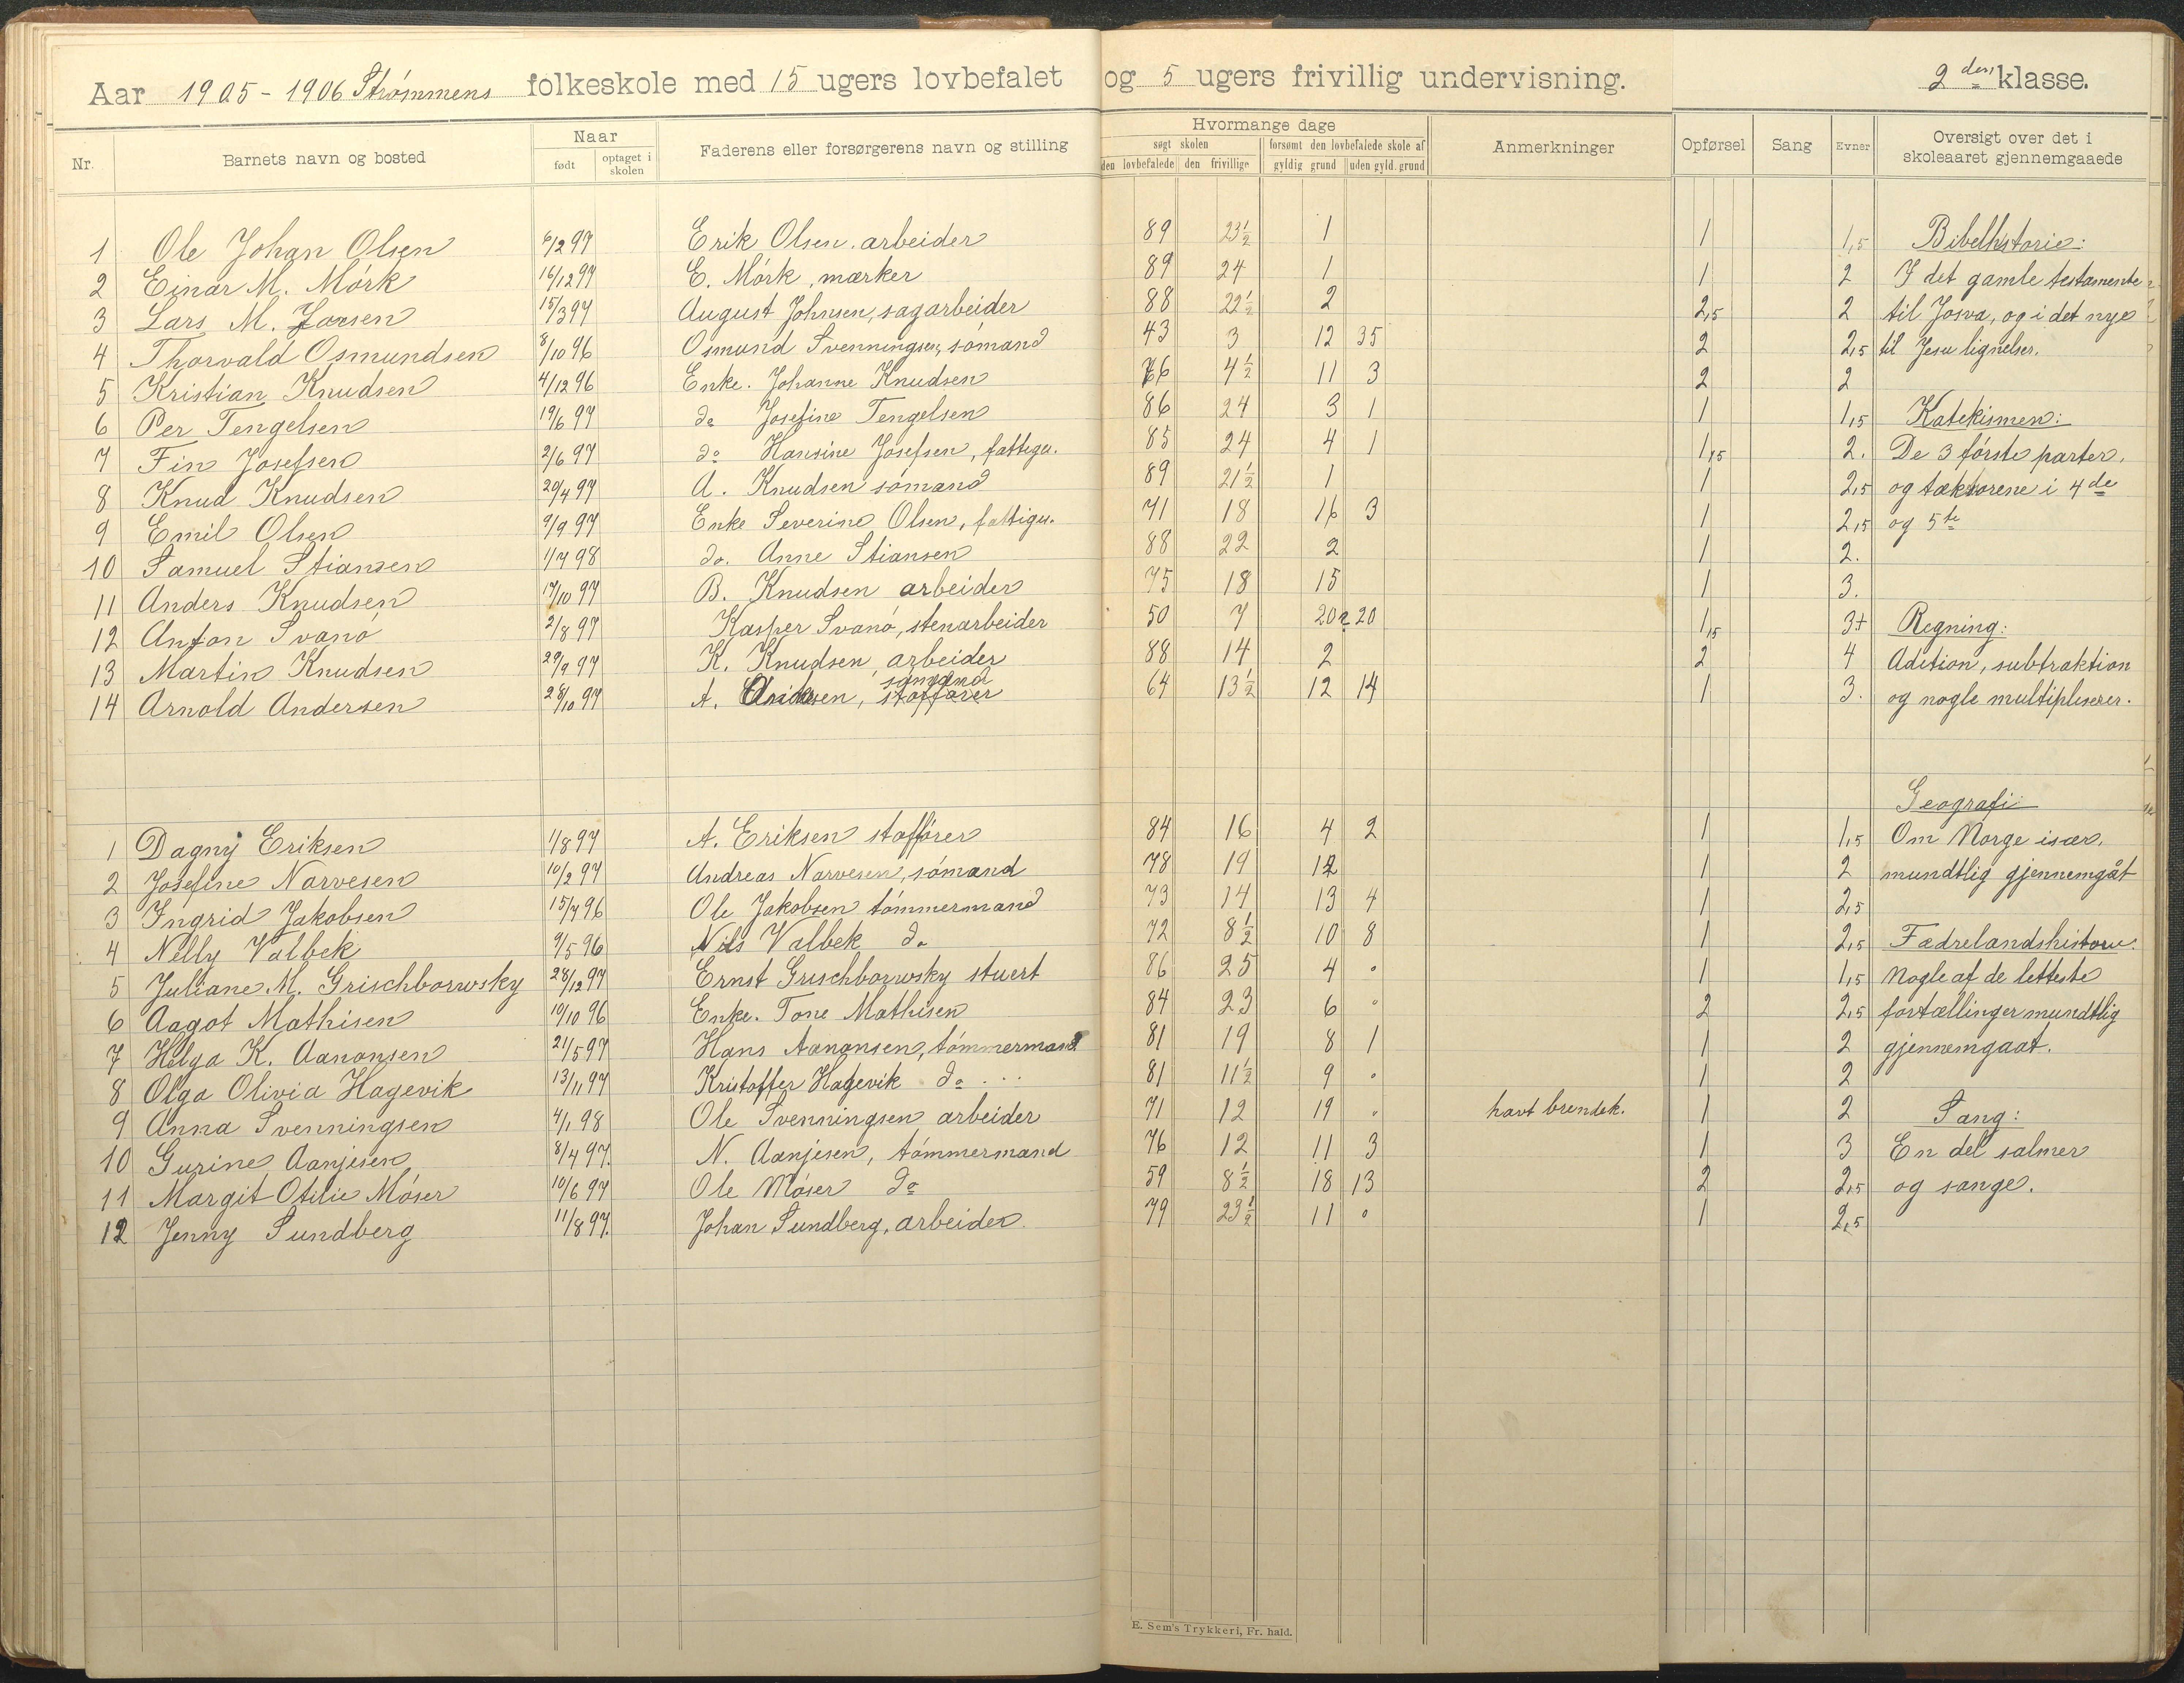 Aar 1905-1906 Strømmens folkeskole med 15 ugers lovbefalet og 5 ugers frivillig undervisning. 2den klasse.
Nr. Barnets navn og bosted Naar født optaget i skolen Faderens eller forsørgerens navn og stilling Hvormange dage søgt skolen den lovbefalede den frivillige forsømt den lovbefalede skole af gyldig grund uden gyld. grund Anmerkninger Opførsel Sang Evner Oversigt over det i skoleaaret gjennemgaaede
1 Ole Johan Olsen 6/2 97 Erik Olsen. arbeider 89 23½ 1 1 1,5 Bibelhistorie:
2 Einar M. Mørk 16/12 97 E. Mørk, mærker 89 24 1 1 2 I det gamle testamente
3 Lars M. Jonsen 15/3 97 August Johnsen, sagarbeider 88 22½ 2 2,5 2 til Josva, og i det nye
4 Thorvald Osmundsen 8/10 96 Osmund Svenningsen, sømand 43 3 12 35 2 2,5 til Jesu lignelser.
5 Kristian Knudsen 4/12 96 Enke. Johanne Knudsen 76 4½ 11 3 2 2
6 Per Tengelsen 19/6 97 do Josefine Tengelsen 86 24 3 1 1 1,5 Katekismen:
7 Fin Josefsen 2/6 97 do Hansine Josefsen, fattigu. 85 24 4 1 1,75 2. De 3 første parter,
8 Knud Knudsen 20/4 97 A. Knudsen sømand 89 21½ 1 1 2,5 og tækstorene i 4de
9 Emil Olsen 9/9 97 Enke Severine Olsen, fattigu. 71 18 16 3 1 2,5 og 5te
10 Samuel Stiansen 1/7 98 do. Anne Stiansen 88 22 2 1 2.
11 Anders Knudsen 17/10 97 B. Knudsen arbeider 75 18 15 1 3.
12 Anton Svanø 2/8 97 Kasper Svanø, stenarbeider 50 7 20 20 1,5 3+ Regning:
13 Martin Knudsen 29/9 97 K. Knudsen, arbeider 88 14 2 2 4 Adition, subtraktion
14 Arnold Andersen 28/10 97 A. Andersen, sømand 64 13½ 12 14 1 3. og nogle multipliserer.
Geografi
1 Dagny Eriksen 1/8 97 A. Eriksen staffører 84 16 4 2 1 1,5 Om Norge især,
2 Josefine Narvesen 10/2 97 Andreas Narvesen, sømand 78 19 12 1 2 mundtlig gjennemgåt
3 Ingrid Jakobsen 15/7 96 Ole Jakobsen tømmermand 73 14 13 4 1 2,5
4 Nelly Valbek 9/5 96 Nils Valbek do 72 8½ 10 8 1 2,5 Fædrelandshistorie.
5 Juliane M. Grischborwsky 28/12 97 Ernst Grischborwsky stuert 86 25 4 0 1 1,5 Nogle af de letteste
6 Aagot Mathisen 10/10 96 Enke. Tone Mathisen 84 23 6 0 2 2,5 fortællinger mundtlig
7 Helga K. Aanonsen 21/5 97 Hans Aanonsen, tømmermand 81 19 8 1 1 2 gjennemgaat.
8 Olga Olivia Hagevik 13/11 97 Kristoffer Hagevik do 81 11½ 9 0 1 2
9 Anna Svenningsen 4/1 98 Ole Svenningsen arbeider 71 12 19 0 havt brendek. 1 2 Sang:
10 Gurine Aanjesen 8/4 97. N. Aanjesen, tømmermand 76 12 11 3 1 3 En del salmer
11 Margit Otilie Møser 10/6 97 Ole Møser do 59 8½ 18 13 2 2,5 og sange.
12 Jenny Sundberg 11/8 97. Johan Sundberg, arbeider. 79 23½ 11 0 1 2,5
E. Sem's Trykkeri, Fr. hald.